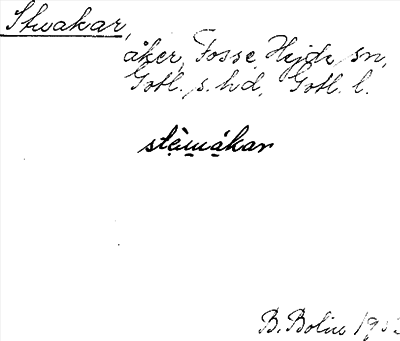 Stwakar,
åker, Fosse, Hejde sn,
Gotl. s. hd, Gotl. l.
stèmákar
B. Bolin